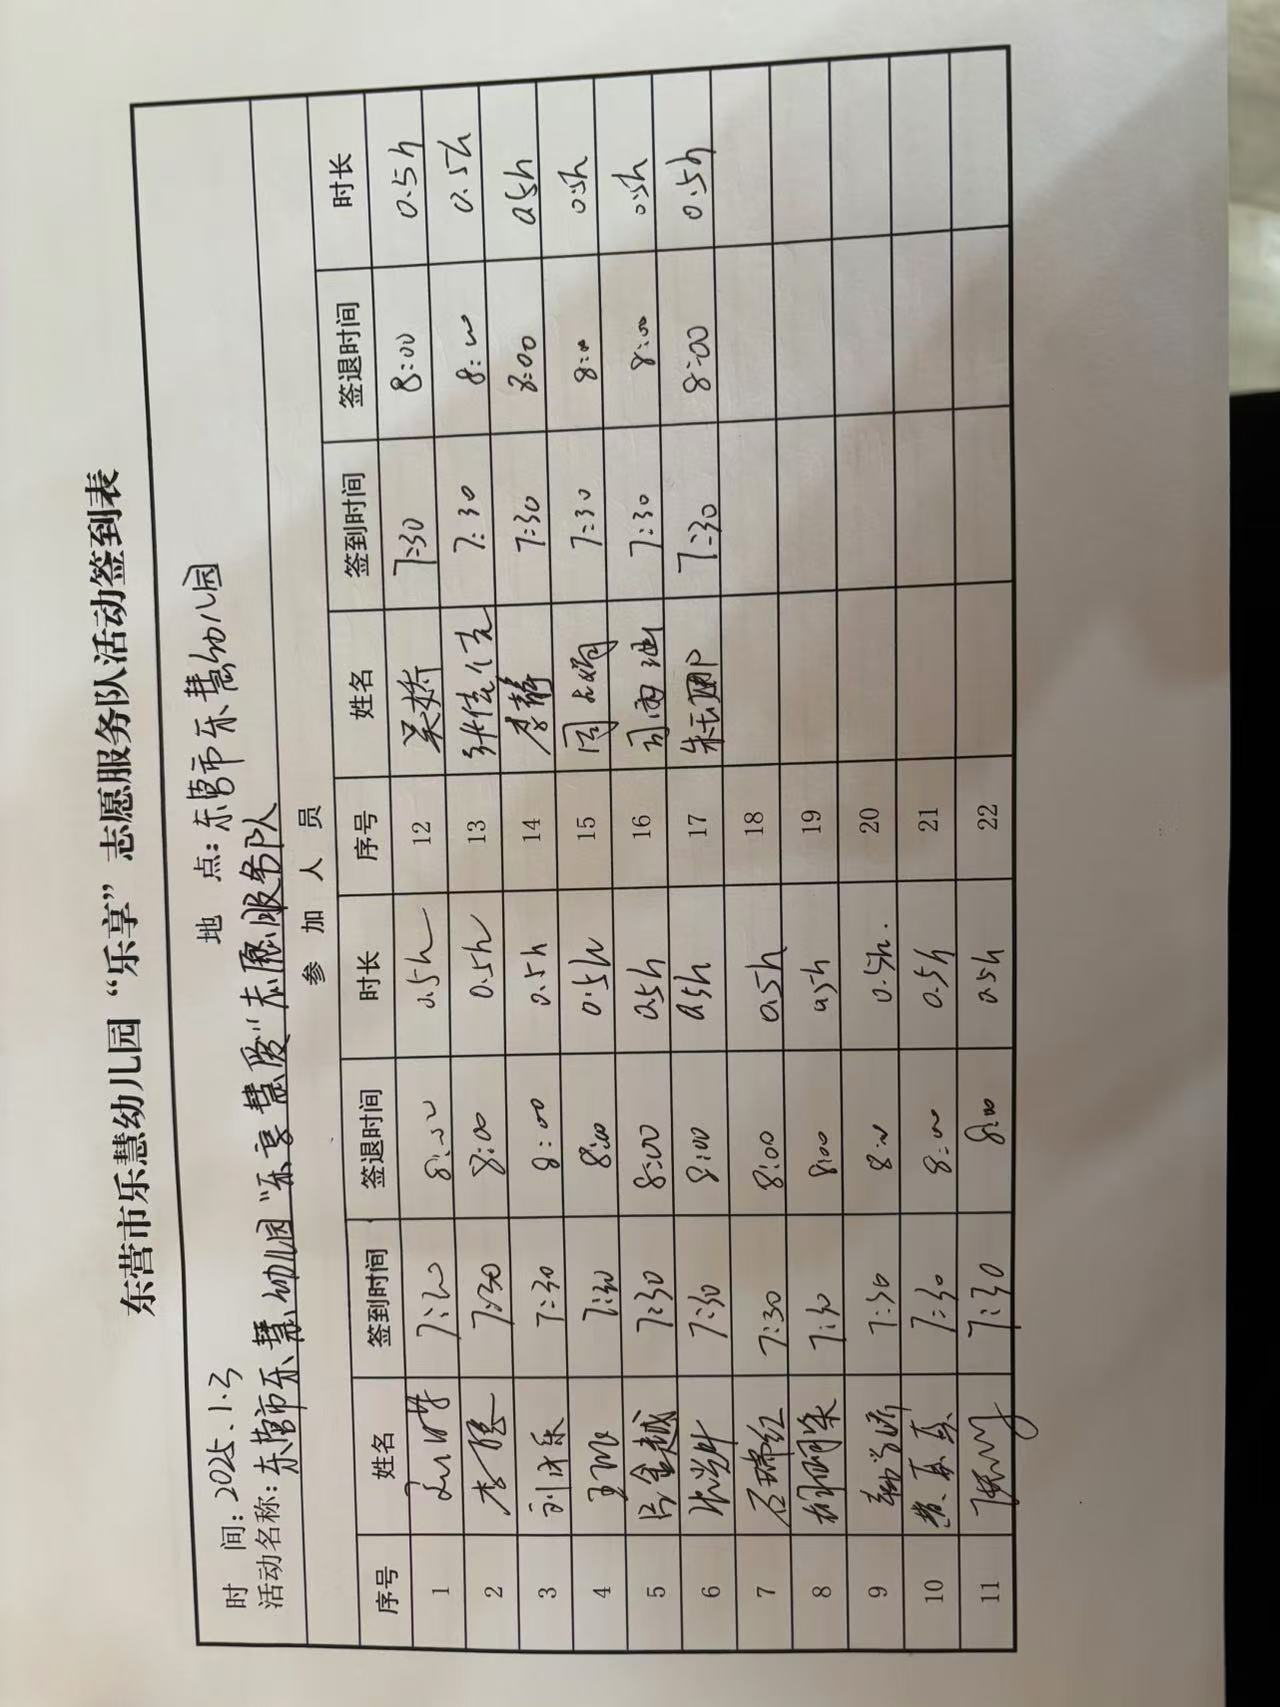 东营市乐慧幼儿园“乐享”志愿服务队活动签到表
时 间：2025.1.3 地 点：东营市乐慧幼儿园
活动名称：东营市乐慧幼儿园“乐享慧爱”志愿服务队
参 加 人 员
序号 姓名 签到时间 签退时间 时长 序号 姓名 签到时间 签退时间 时长
1 7:30 8:00 0.5h 12 吴娇 7:30 8:00 0.5h
2 7:30 8:00 0.5h 13 7:30 8:00 0.5h
3 7:30 8:00 0.5h 14 李静 7:30 8:00 0.5h
4 7:30 8:00 0.5h 15 7:30 8:00 0.5h
5 吕金越 7:30 8:00 0.5h 16 7:30 8:00 0.5h
6 7:30 8:00 0.5h 17 7:30 8:00 0.5h
7 石瑞红 7:30 8:00 0.5h 18
8 7:30 8:00 0.5h 19
9 7:30 8:00 0.5h. 20
10 7:30 8:00 0.5h 21
11 7:30 8:00 0.5h 22